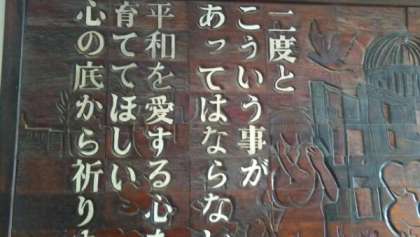 二度と
こういう事が
あってはならな
平和を愛する心
育ててほしい
心の底から祈り